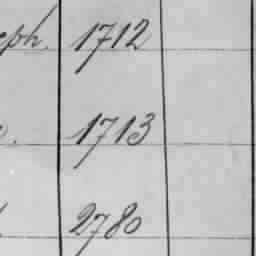 eph. 1712
1713
2780